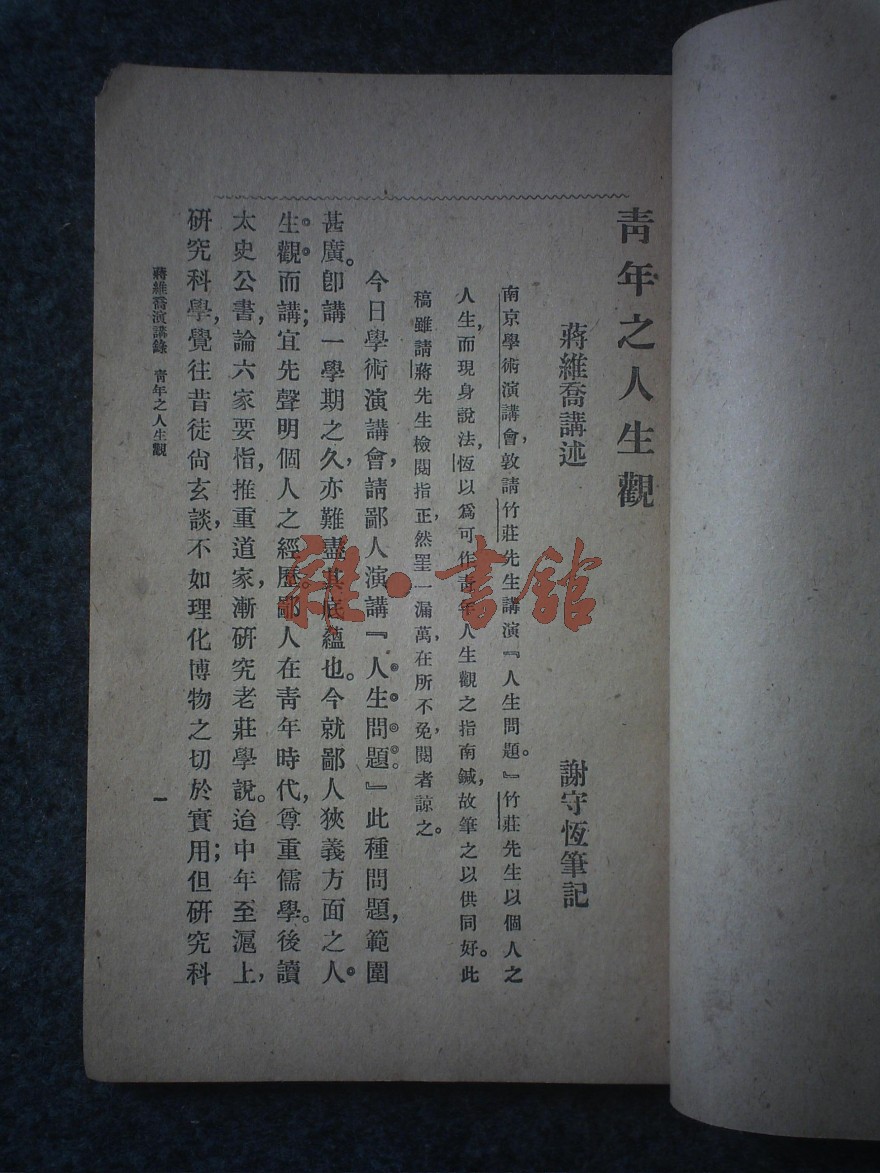 青年之人生觀
蔣維喬講述　謝守恆筆記
南京學術演講會，敦請竹莊先生講演『人生問題。』竹莊先生以個人之
人生，而現身說法，恆以爲可作青年人生觀之指南鍼，故筆之以供同好。此
稿雖請蔣先生檢閱指正，然罣一漏萬，在所不免，閱者諒之。
今日學術演講會，請鄙人演講『人生問題。』此種問題，範圍
甚廣。卽講一學期之久，亦難盡其底蘊也。今就鄙人狹義方面之人
生觀而講；宜先聲明個人之經歷。鄙人在青年時代，尊重儒學。後讀
太史公書，論六家要恉，推重道家，漸研究老莊學說。迨中年至滬上，
研究科學，覺往昔徒尙玄談，不如理化博物之切於實用；但研究科
蔣維喬演講錄　青年之人生觀
一
雜·書館